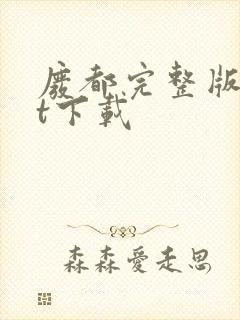 廢都完整版
t下載
森森愛走思